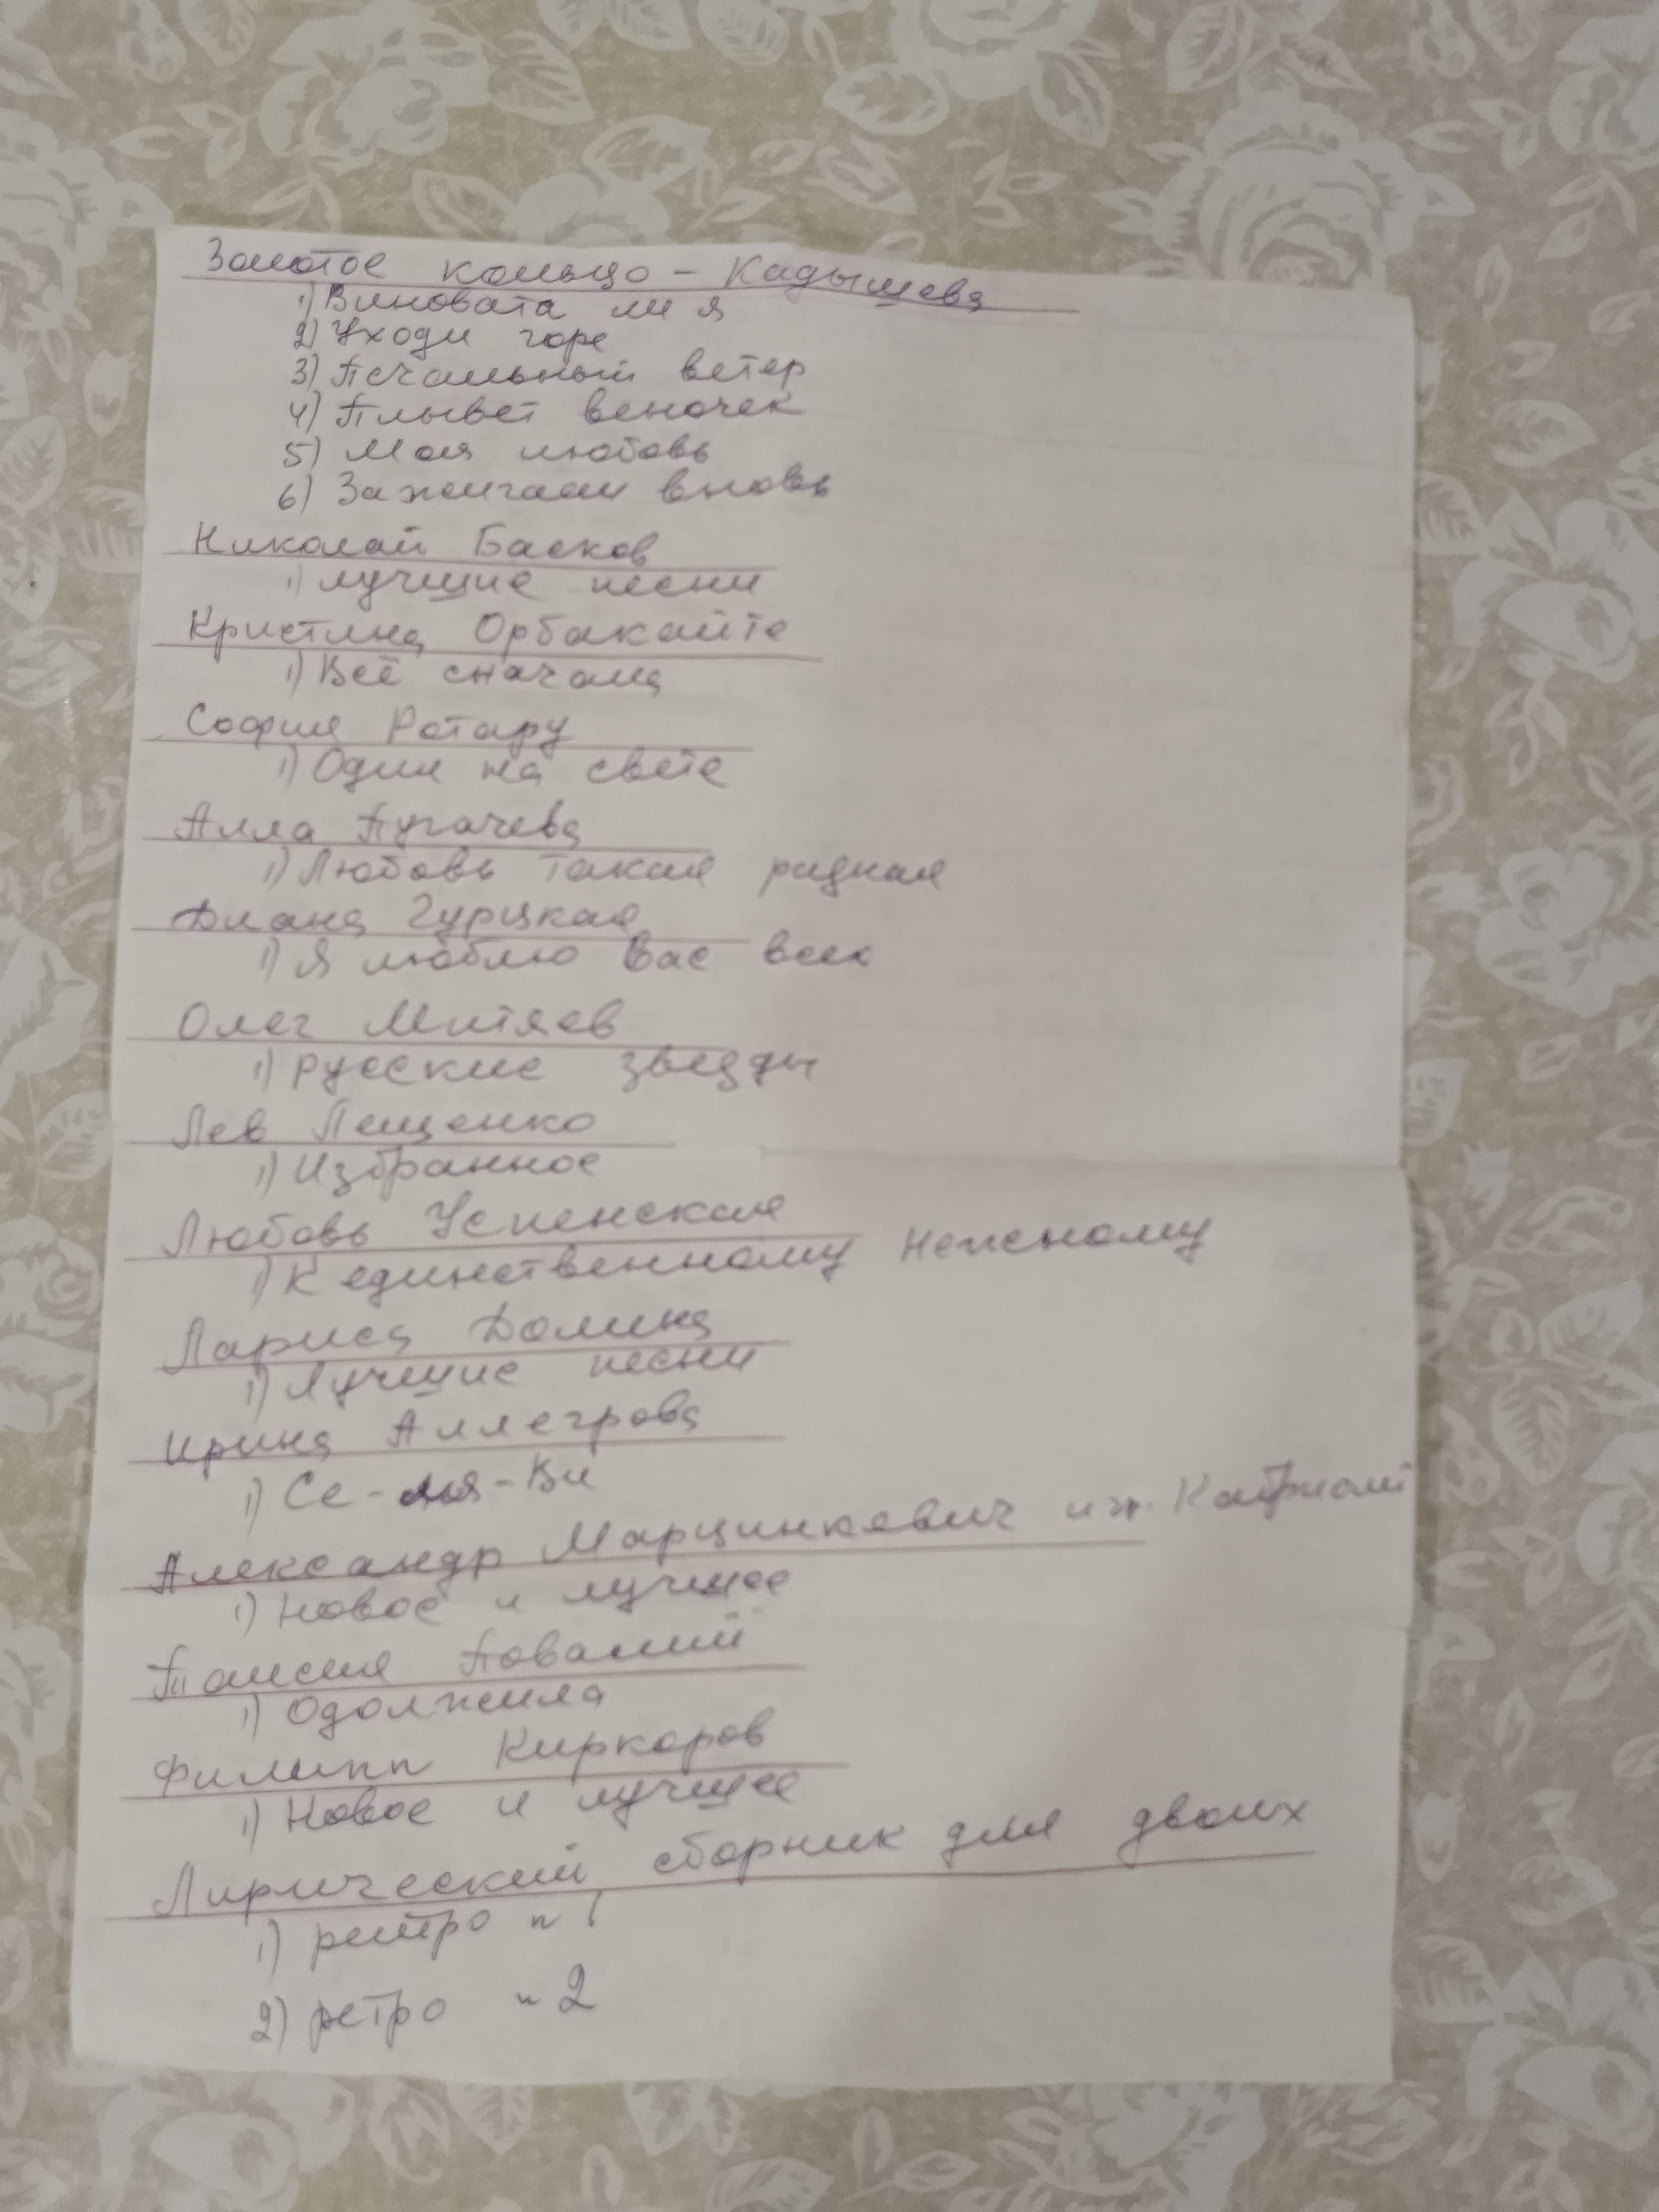 Золотое кольцо - Кадышева
1) Виновата ли я
2) Уходи горе
3) Печальный ветер
4) Плывет веночек
5) Моя любовь
6) Зажигаем вновь
Николай Басков
1) лучшие песни
Кристина Орбакайте
1) Всё сначала
София Ротару
1) Один на свете
Алла Пугачева
1) Любовь такая разная
Диана Гурцкая
1) Я люблю Вас всех
Олег Митяев
1) русские звезды
Лев Лещенко
1) Избранное
Любовь Успенская
1) К единственному нежному
Лариса Долина
1) Лучшие песни
Ирина Аллегрова
1) Се-ля-Ви
Александр Марцинкевич и гр. Кабриолет
1) Новое и лучшее
Таисия Повалий
1) Одолжила
Филипп Киркоров
1) Новое и лучшее
Лирический сборник для двоих
1) ретро n 1
2) ретро n 2